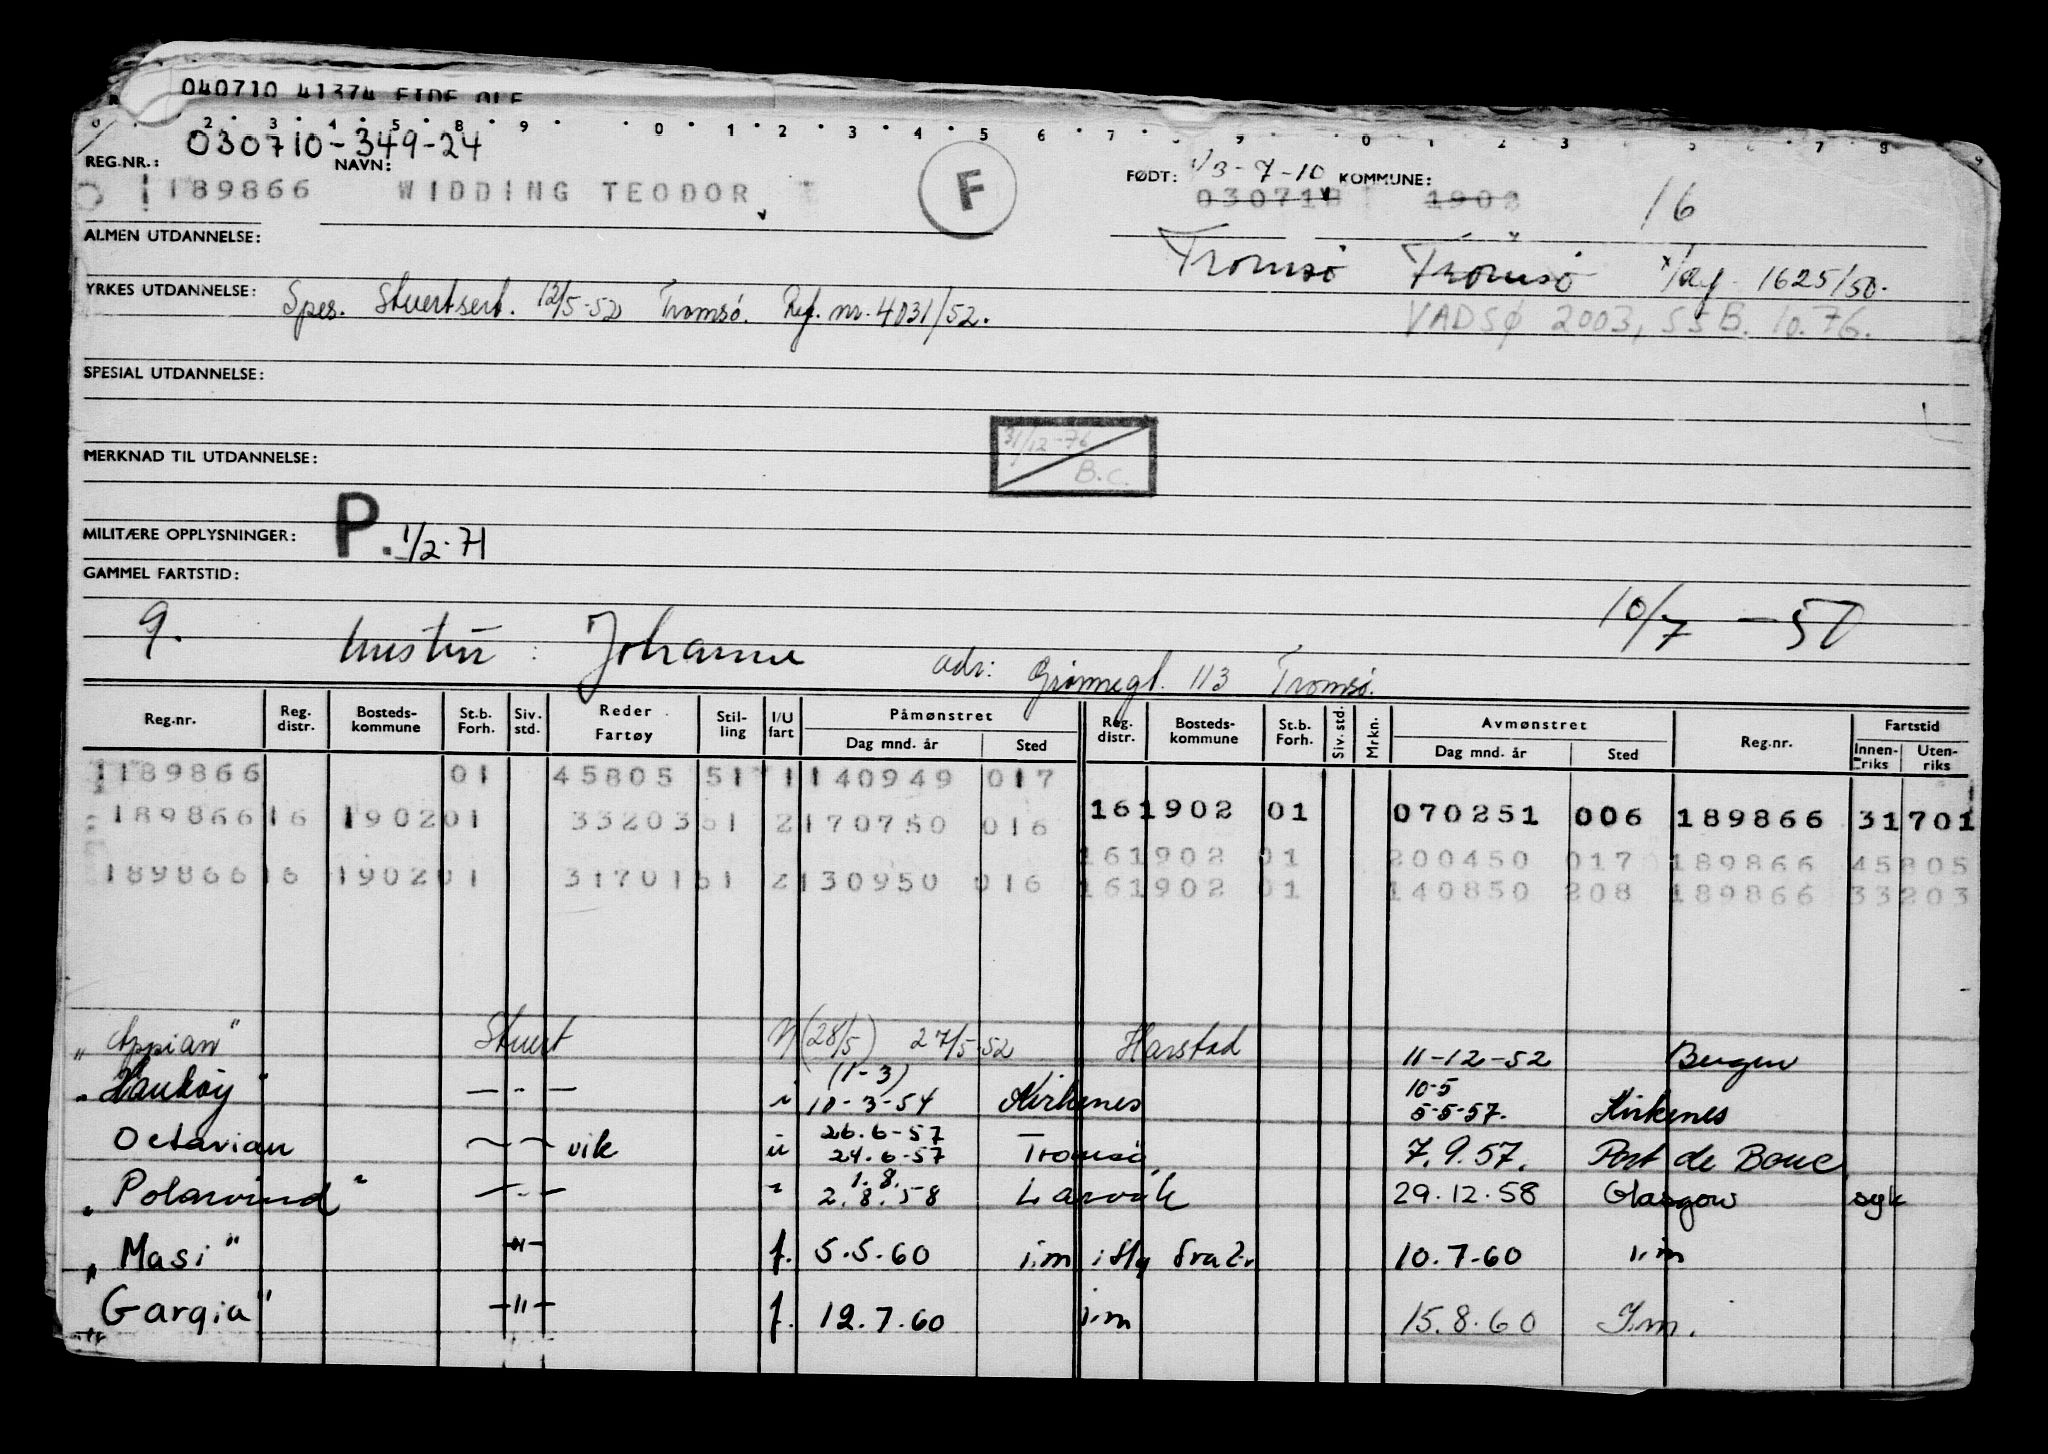 040710 41374 EIDE OLE
0 2 3 4 5 8 9 0 1 2 3 4 5 6 7 9 0 1 2 3 5 7 8 9
030710-349-24
REG.NR.: NAVN: FØDT: 3-7-10 KOMMUNE:
189866 WIDDING TEODOR F 030718 1902 16
ALMEN UTDANNELSE: Tromsø Tromsø 1625/50.
YRKES UTDANNELSE: Spes. Stuertsert. 12/5-52 Tromsø. Ref. nr. 4031/52.
VADSØ 2003, SSB. 10.76.
SPESIAL UTDANNELSE:
31/12-76 B.C.
MERKNAD TIL UTDANNELSE:
MILITÆRE OPPLYSNINGER: P. 1/2-71
GAMMEL FARTSTID:
g. hustru: Johanne adr: Grønnegt. 113 Tromsø. 10/7-50
Reg.nr. Reg. distr. Bosteds-kommune St.b. Forh. Siv. std. Reder Fartøy Stil-ling I/U fart Påmønstret Dag mnd. år Sted Reg. distr. Bosteds-kommune St.b. Forh. Siv. std. Mrkn. Avmønstret Dag mnd. år Sted Reg.nr. Fartstid Innen-riks Uten-riks
189866 01 45805 51 1 140949 017
189866 16 1902 01 33203 51 2 170750 016 16 1902 01 070251 006 189866 31701
16 1902 01 200450 017 189866 45805
189866 16 1902 01 31701 51 2 130950 016 16 1902 01 140850 208 189866 33203
"Appian" Stuert N (28/5) 27/5-52 Harstad 11-12-52 Bergen
(1-3) 10-5
"Haukøy" —"— i 10-3-54 Kirkenes 5-5-57. Kirkenes
26.6-57
Octavian —"— vik u 24.6-57 Tromsø 7.9.57. Port de Bouc
1.8.
"Polarvind" —"— " 2.8.58 Larvik 29.12.58 Glasgow syk
"Masi" —"— f. 5.5.60 i.m. 10.7.60 i.m
"Gargia" —"— f. 12.7.60 i.m 15.8.60 I.m.